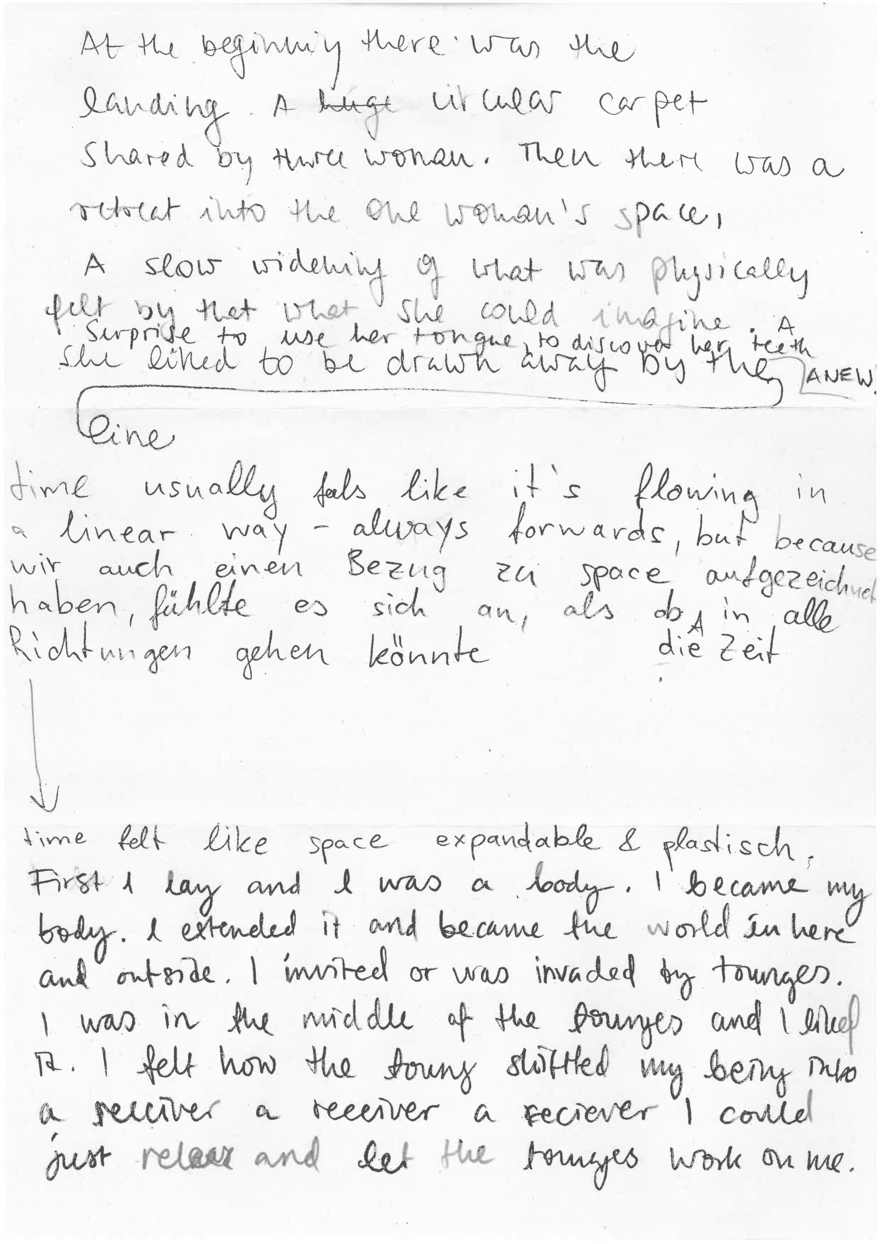 At the beginning there was the
landing. A huge circular carpet
shared by three woman. Then there was a
retreat into the one woman's space,
A slow widening of what was physically
felt by that what she could imagine. A
Surprise to use her tongue, to discover her teeth
ANEW.
she liked to be drawn away by the
line
time usually feels like it's flowing in
a linear way – always forwards, but because
wir auch einen Bezug zu space aufgezeichnet
haben, fühlte es sich an, als ob in alle
die Zeit
Richtungen gehen könnte
time felt like space expandable & plastisch,
First I lay and I was a body. I became my
body. I extended it and became the world in here
and outside. I invited or was invaded by tounges.
I was in the middle of the tounges and I liked
it. I felt how the toung shiftted my being into
a receiver a receiver a reciever I could
just relax and let the tounges work on me.